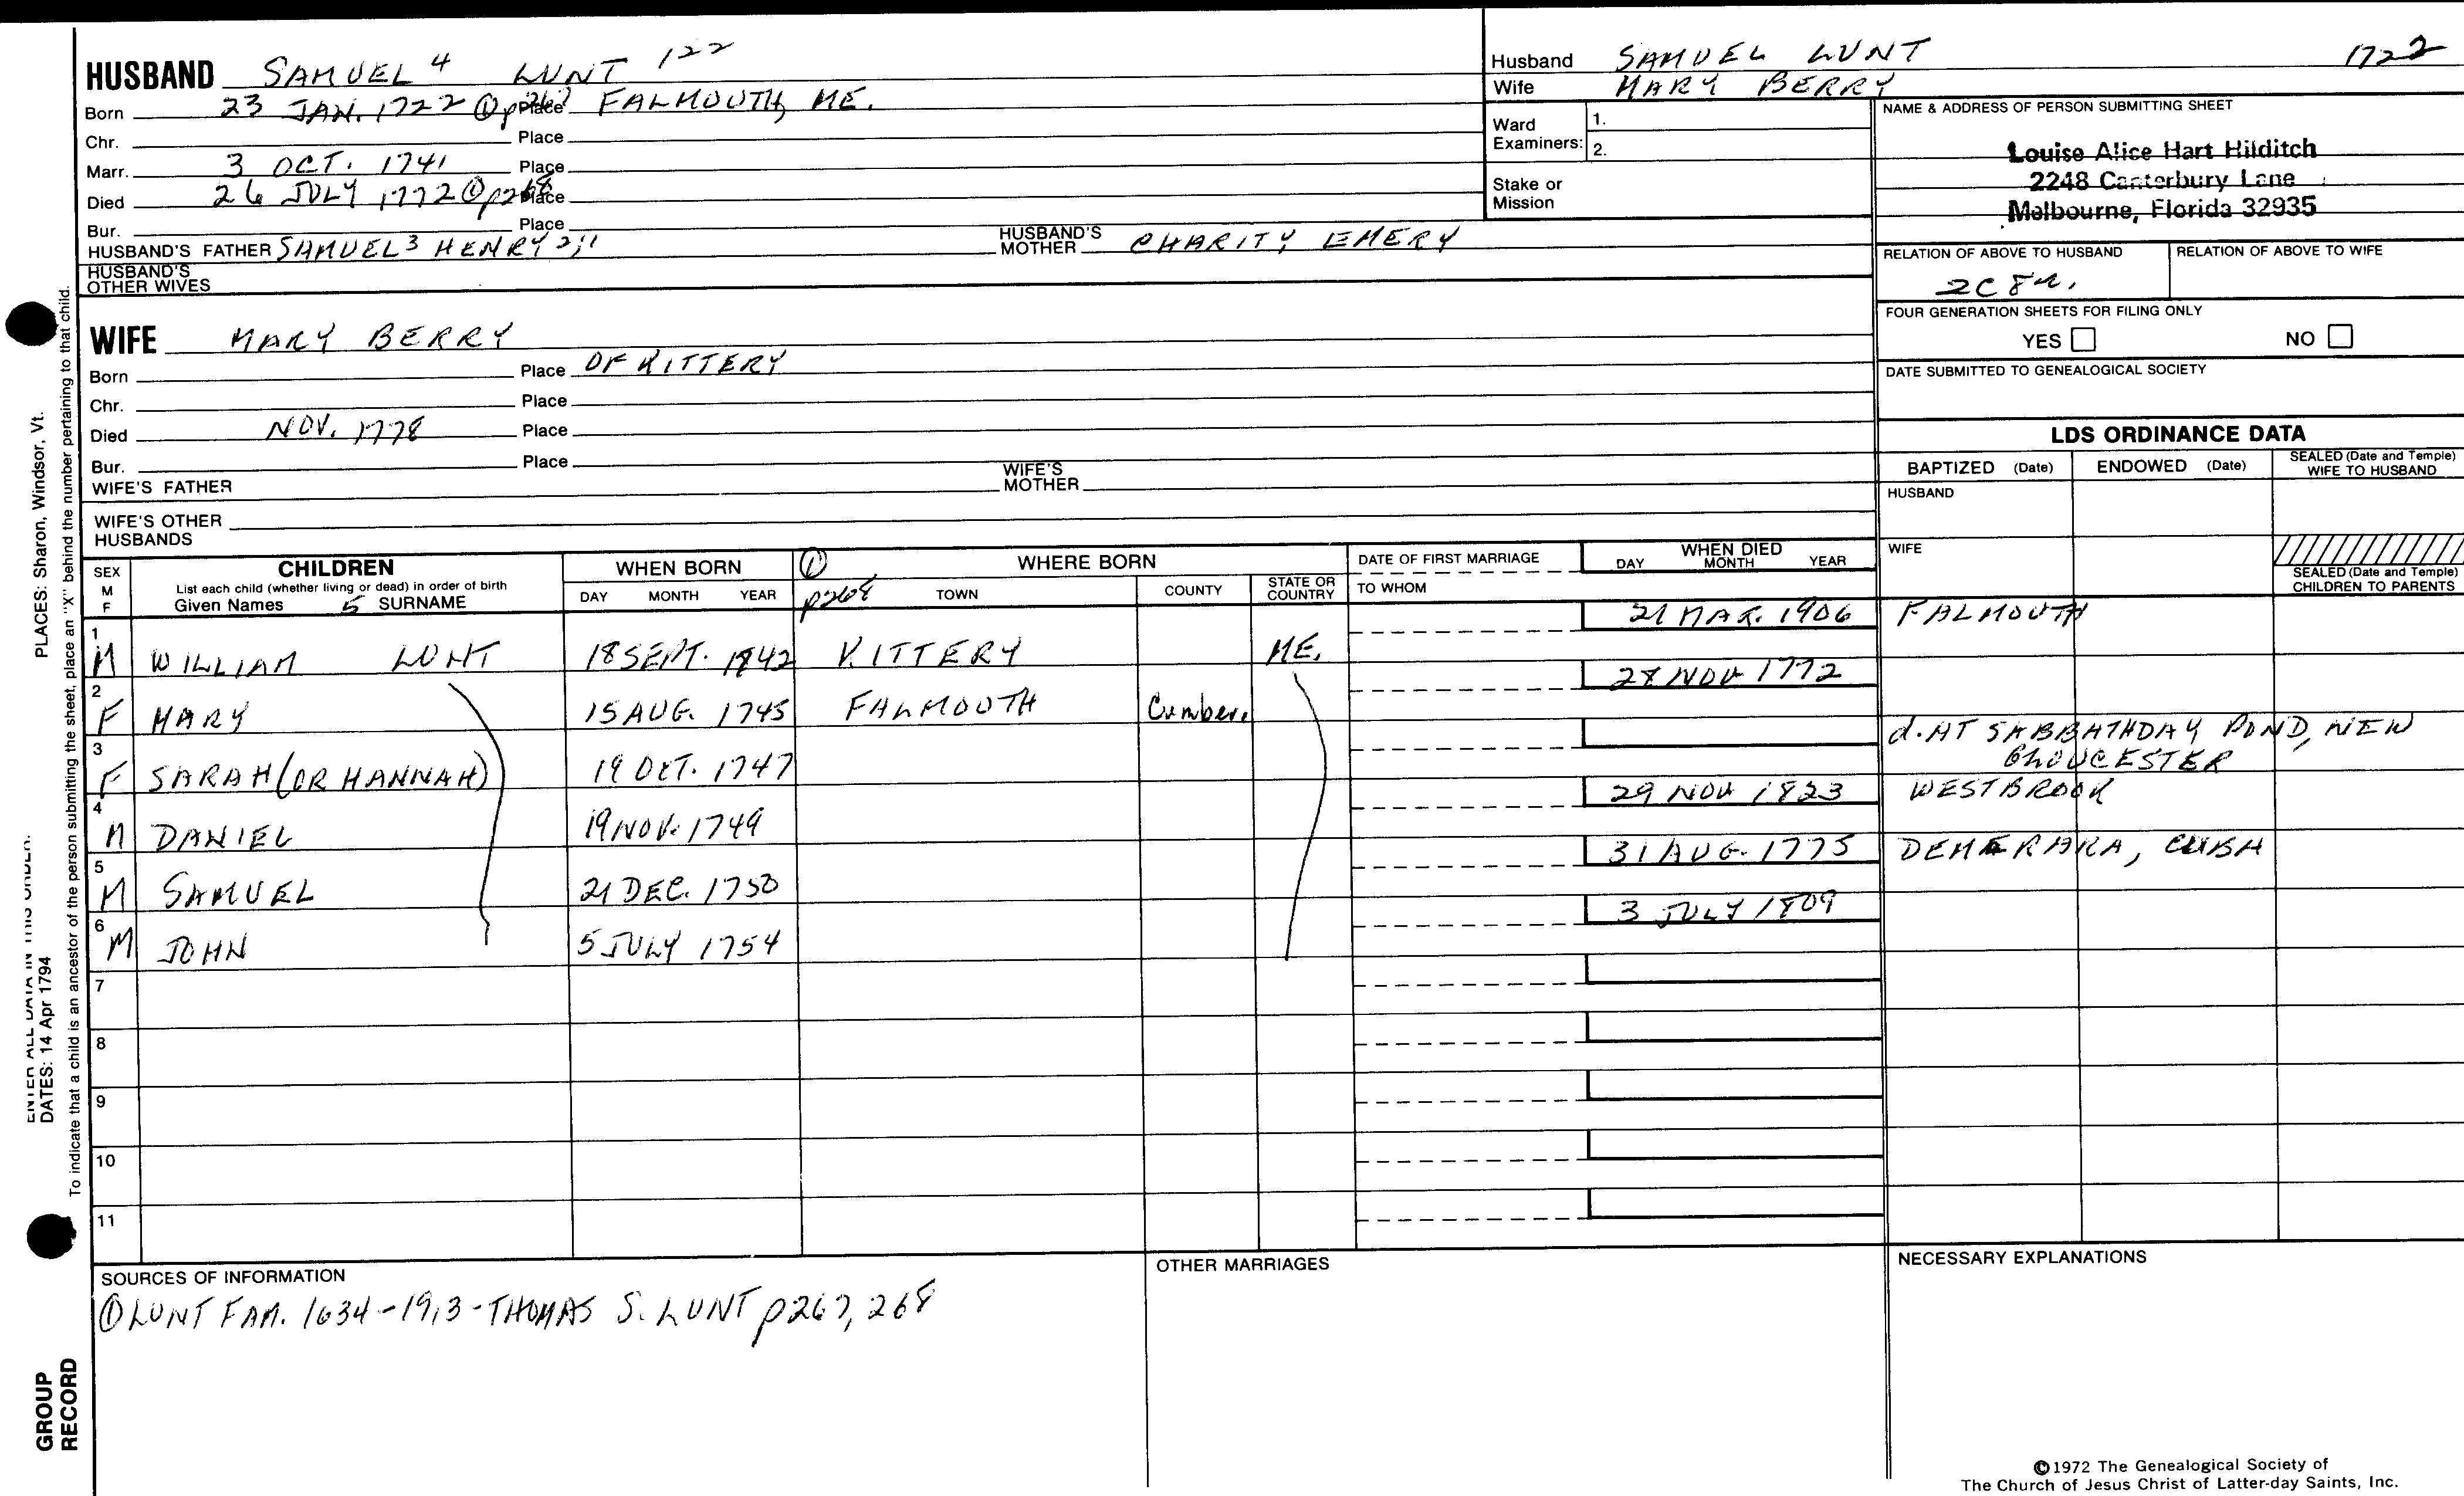 HUSBAND SAMUEL 4 LUNT 122
Born 23 JAN. 1722 ① p267 Place FALMOUTH, ME.
Chr. Place
Marr. 3 OCT. 1741 Place
Died 26 JULY 1772 ① p268 Place
Bur. Place
HUSBAND'S FATHER SAMUEL 3 HENRY 2, 1 HUSBAND'S MOTHER CHARITY EMERY
HUSBAND'S OTHER WIVES
WIFE MARY BERRY
Born Place OF KITTERY
Chr. Place
Died NOV. 1778 Place
Bur. Place
WIFE'S FATHER WIFE'S MOTHER
WIFE'S OTHER HUSBANDS
Husband SAMUEL LUNT 1722
Wife MARY BERRY
Ward Examiners: 1.
2.
Stake or Mission
NAME & ADDRESS OF PERSON SUBMITTING SHEET
Louise Alice Hart Hilditch
2248 Canterbury Lane
Melbourne, Florida 32935
RELATION OF ABOVE TO HUSBAND RELATION OF ABOVE TO WIFE
2C 8r.
FOUR GENERATION SHEETS FOR FILING ONLY
YES NO
DATE SUBMITTED TO GENEALOGICAL SOCIETY
LDS ORDINANCE DATA
BAPTIZED (Date) ENDOWED (Date) SEALED (Date and Temple) WIFE TO HUSBAND
HUSBAND
WIFE
SEALED (Date and Temple) CHILDREN TO PARENTS
SEX M F
CHILDREN
List each child (whether living or dead) in order of birth
Given Names 5 SURNAME
WHEN BORN
DAY MONTH YEAR
① p268
WHERE BORN
TOWN COUNTY STATE OR COUNTRY
DATE OF FIRST MARRIAGE
TO WHOM
WHEN DIED
DAY MONTH YEAR
1 M WILLIAM LUNT 18 SEPT. 1842 KITTERY ME. 21 MAR. 1906 FALMOUTH
2 F MARY 15 AUG. 1745 FALMOUTH Cumber. 28 NOV 1772
3 F SARAH (OR HANNAH) 19 OCT. 1747 d. AT SABBATHDAY POND, NEW GLOUCESTER
4 M DANIEL 19 NOV. 1749 29 NOV 1823 WESTBROOK
5 M SAMUEL 21 DEC. 1750 31 AUG. 1775 DEMERARA, CUBA
6 M JOHN 5 JULY 1754 3 JULY 1809
7
8
9
10
11
SOURCES OF INFORMATION
① LUNT FAM. 1634-1913 - THOMAS S. LUNT p267, 268
OTHER MARRIAGES
NECESSARY EXPLANATIONS
©1972 The Genealogical Society of
The Church of Jesus Christ of Latter-day Saints, Inc.
PLACES: Sharon, Windsor, Vt.
ENTER ALL DATA IN THIS ORDER:
DATES: 14 Apr 1794
To indicate that a child is an ancestor of the person submitting the sheet, place an "X" behind the number pertaining to that child.
GROUP
RECORD